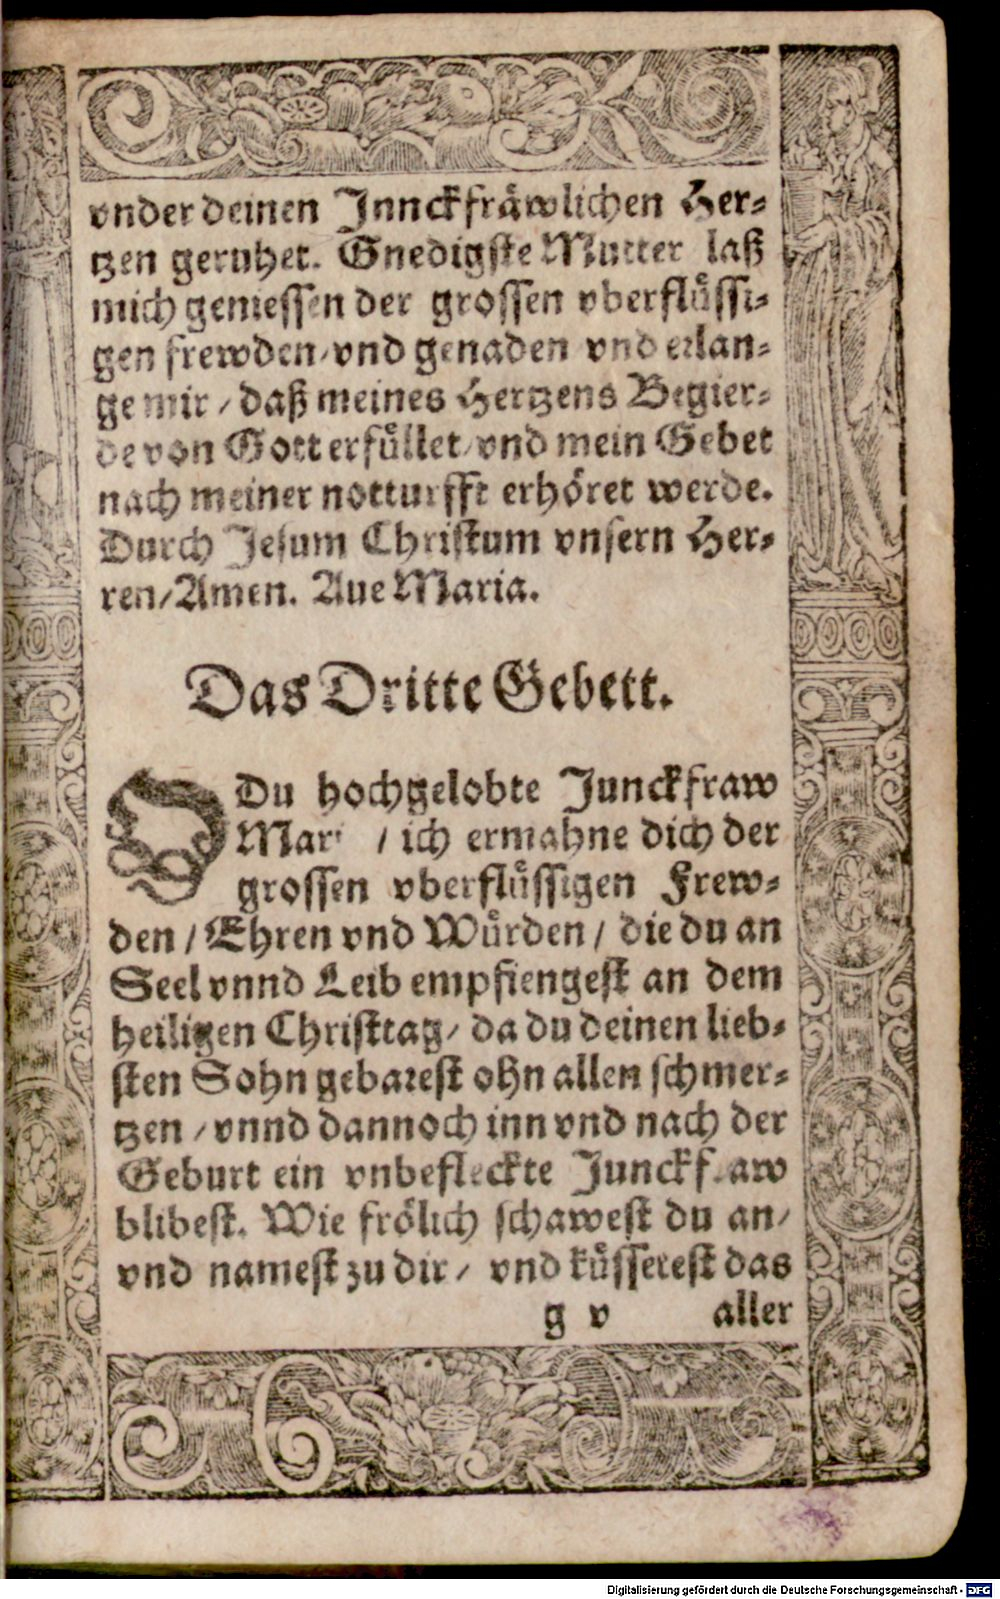 vnder deinen Jnnckfräwlichen Her-
tzen geruhet. Gnedigste Mutter laß
mich geniessen der grossen vberflüssi-
gen frewden/ vnd genaden vnd erlan-
ge mir / daß meines Hertzens Begier-
de von Gott erfüllet/ vnd mein Gebet
nach meiner notturfft erhöret werde.
Durch Jesum Christum vnsern Her-
ren/ Amen. Aue Maria.
Das Dritte Gebett.
O Du hochgelobte Junckfraw
Mari / ich ermahne dich der
grossen vberflüssigen Frew-
den / Ehren vnd Würden / die du an
Seel vnnd Leib empfiengest an dem
heiligen Christtag/ da du deinen lieb-
sten Sohn gebarest ohn allen schmer-
tzen / vnnd dannoch inn vnd nach der
Geburt ein vnbefleckte Junckfraw
blibest. Wie frölich schawest du an/
vnd namest zu dir / vnd küssetest das
g v aller
Digitalisierung gefördert durch die Deutsche Forschungsgemeinschaft - DFG